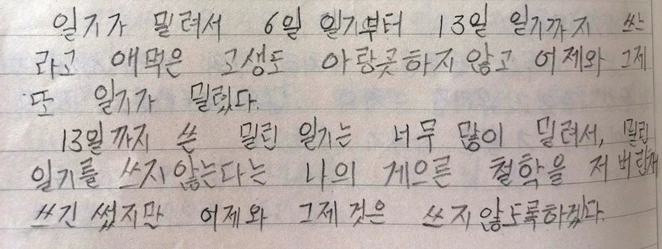 일기가 밀려서 6일 일기부터 13일 일기까지 쓰느
라고 애먹은 고생도 아랑곳하지 않고 어제와 그제
또 일기가 밀렸다.
13일까지 쓴 밀린 일기는 너무 많이 밀려서, 밀린
일기를 쓰지 않는다는 나의 게으른 철학을 저 버린채
쓰긴 썼지만 어제와 그제 것은 쓰지 않도록하겠다.